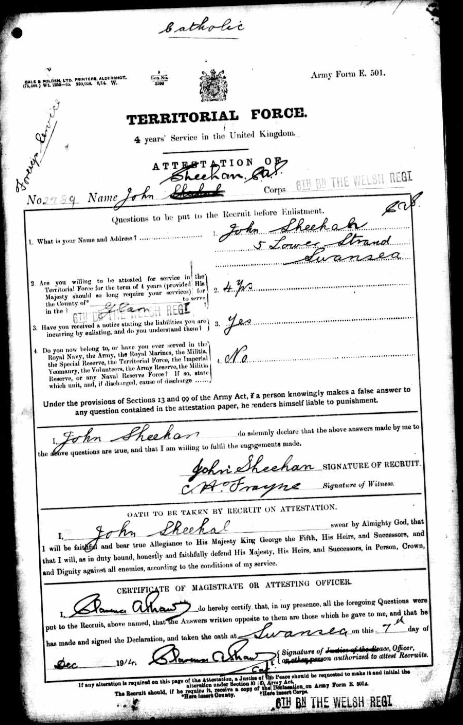 Catholic
GALE & POLDEN, LTD. PRINTERS, ALDERSHOT.
Army Form E. 501.
Foreign Service
TERRITORIAL FORCE.
4 years' Service in the United Kingdom.
ATTESTATION OF
Sheehan,
No. Name John Corps 6TH BN THE WELSH REGT
Questions to be put to the Recruit before Enlistment.
1. What is your Name and Address? 1. John Sheehan
5 Lower Strand
Swansea
2. Are you willing to be attested for service in the
Territorial Force for the term of 4 years (provided His
Majesty should so long require your services) for
the County of Glam to serve
in the 6TH BN THE WELSH REGT
2. 4 Yrs
3. Have you received a notice stating the liabilities you are
incurring by enlisting, and do you understand them?
3. Yes
4. Do you now belong to, or have you ever served in the
Royal Navy, the Army, the Royal Marines, the Militia,
the Special Reserve, the Territorial Force, the Imperial
Yeomanry, the Volunteers, the Army Reserve, the Militia
Reserve, or any Naval Reserve Force? If so, state
which unit, and, if discharged, cause of discharge
4. No
Under the provisions of Sections 13 and 99 of the Army Act, if a person knowingly makes a false answer to
any question contained in the attestation paper, he renders himself liable to punishment.
I, John Sheehan do solemnly declare that the above answers made by me to
the above questions are true, and that I am willing to fulfil the engagements made.
John Sheehan SIGNATURE OF RECRUIT.
Signature of Witness.
OATH TO BE TAKEN BY RECRUIT ON ATTESTATION.
I, John Sheehan swear by Almighty God, that
I will be faithful and bear true Allegiance to His Majesty King George the Fifth, His Heirs, and Successors, and
that I will, as in duty bound, honestly and faithfully defend His Majesty, His Heirs, and Successors, in Person, Crown,
and Dignity against all enemies, according to the conditions of my service.
CERTIFICATE OF MAGISTRATE OR ATTESTING OFFICER.
I, do hereby certify, that, in my presence, all the foregoing Questions were
put to the Recruit, above named, that the Answers written opposite to them are those which he gave to me, and that he
has made and signed the Declaration, and taken the oath at Swansea on this 7th day of
Dec 1914.
Signature of Justice of the Peace, Officer,
or other person authorized to attest Recruits.
If any alteration is required on this page of the Attestation, a Justice of the Peace should be requested to make it and initial the
alteration under Section 80 (6), Army Act.
The Recruit should, if he require it, receive a copy of the Declaration, on Army Form E. 501A.
*Here insert County. †Here insert Corps.
6TH BN THE WELSH REGT